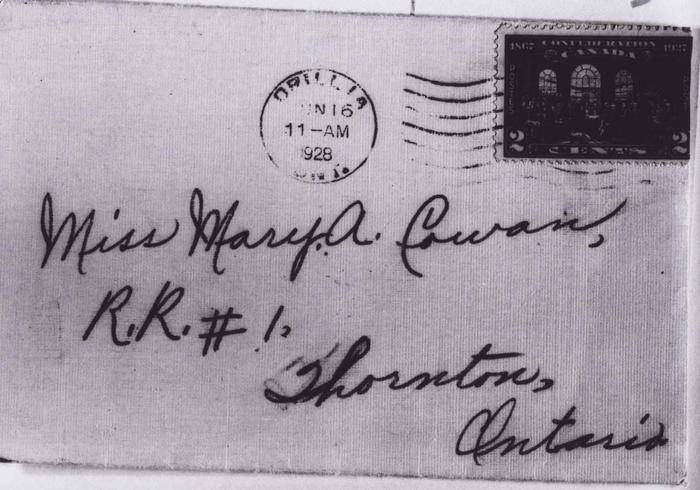 1867 CONFEDERATION 1927
CANADA
2 CENTS 2
ORILLIA
UN 16
11-AM
1928
ONT.
Miss Mary. A. Cowan,
R.R. # 1,
Thornton,
Ontario